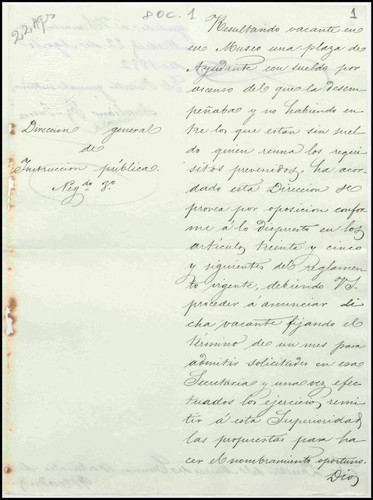 22 Ago
8 DC. 1
1
Direccion general
de
Instrucción pública.
Negdo. 3º
Resultando vacante en
ese Museo una plaza de
Ayudante con sueldo por
ascenso del que la desem
peñaba y no habiendo en
tre los que están sin suel
do quien reuna los requi
sitos prevenidos, ha acor
dado esta Direccion se
provea por oposicion confor
me á lo dispuesto en los
artículos treinte y cinco
y siguientes del Reglamen
to vigente, debiendo V.S.
proceder á anunciar di
cha vacante fijando el
término de un mes para
admitir solicitudes en esa
Secretaria y una vez efec
tuados los ejercicios remi
tir á esta Superioridad
las propuestas para ha
cer el nombramiento oportuno.
Dios